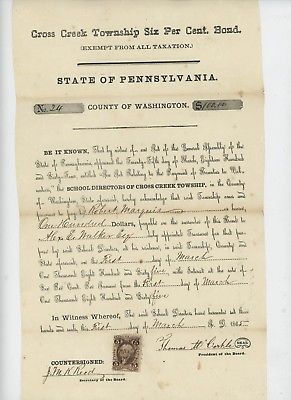 Cross Creek Township Six Per Cent. Bond.
(EXEMPT FROM ALL TAXATION.)
STATE OF PENNSYLVANIA.
No. 24 COUNTY OF WASHINGTON. $100.00
BE IT KNOWN, That by virtue of an Act of the General Assembly of the
State of Pennsylvania approved the Twenty-Fifth day of March, Eighteen Hundred
and Sixty-Four, entitled "An Act Relating to the Payment of Bounties to Vol-
unteers," the SCHOOL DIRECTORS OF CROSS CREEK TOWNSHIP, in the County
of Washington, State aforesaid, hereby acknowledge that said Township owes and
promises to pay Robert Marquis
One Hundred Dollars, payable on the surrender of this Bond to
Alex. E. Walker Esq duly appointed Treasurer for that pur-
pose by said School Directors, at his in said Township, County and
State, on the First day of March
One Thousand Eight Hundred and Sixty with Interest at the rate of
Six Per Cent. Per Annum from the First day of March
One Thousand Eight Hundred and Sixty five
In Witness Whereof, The said School Directors have hereunto set their
hands and seals this First day of March A. D. 1865
Thomas Mc SEAL
President of the Board.
COUNTERSIGNED:
J. M. K. Reed
Secretary of the Board.